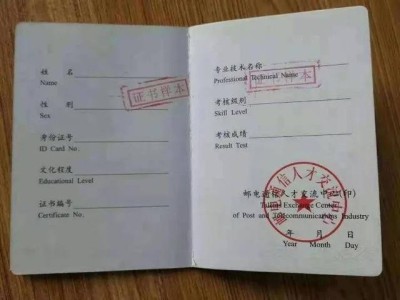 姓 名
Name
证书样本
性 别
Sex
考份证号
ID Card No.
文化程度
Educational Level
证书编号
Certificate No.
专业技术名称
Professional Technical Name
证书样本
考核级别
Skill Level
考核成绩
Result Test
邮电通信人才交流中心(印)
Talent Exchange Center
of Post and Telecommunications Industry
年 月 日
Year Month Day
邮电通信人才交流中心